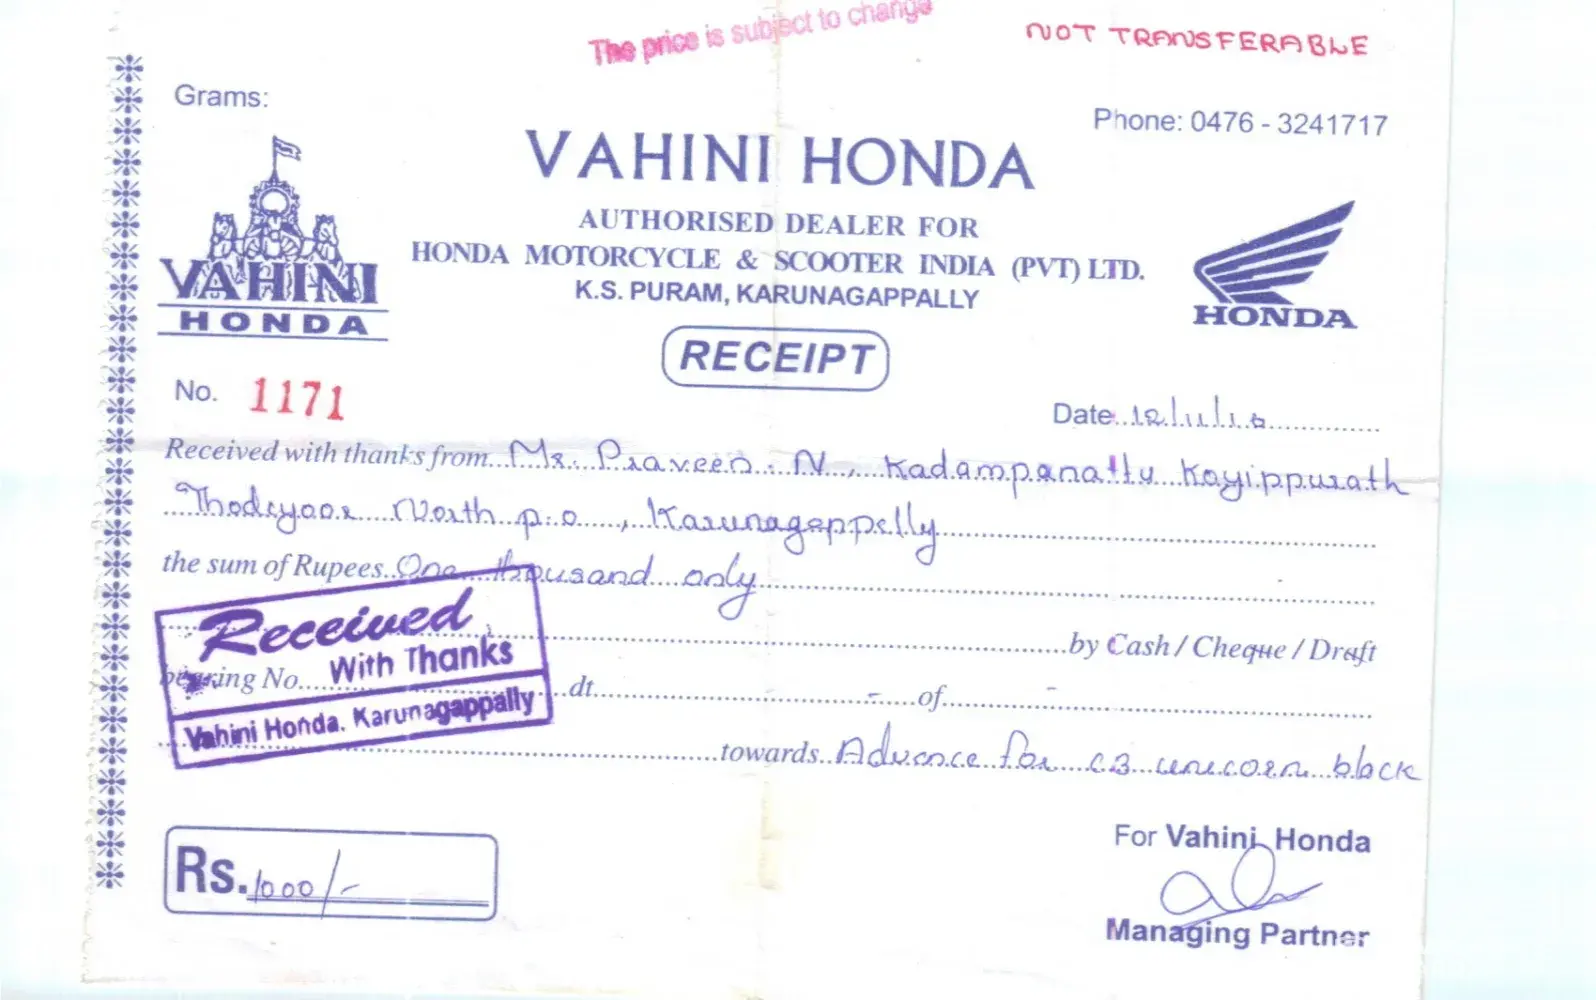 The price is subject to change
NOT TRANSFERABLE
Grams:
Phone: 0476 - 3241717
VAHINI HONDA
AUTHORISED DEALER FOR
HONDA MOTORCYCLE & SCOOTER INDIA (PVT) LTD.
K.S. PURAM, KARUNAGAPPALLY
VAHINI
HONDA
HONDA
RECEIPT
No. 1171
Date 12/11/10
Received with thanks from Mr. Praveen. N, Kadampanattu Kayippurath
Thodiyoor North p.o, Karunagappally
the sum of Rupees One thousand only
by Cash / Cheque / Draft
bearing No. dt of
Received
With Thanks
Vahini Honda. Karunagappally
towards Advance for CB unicorn black
Rs. 1000/-
For Vahini Honda
Managing Partner